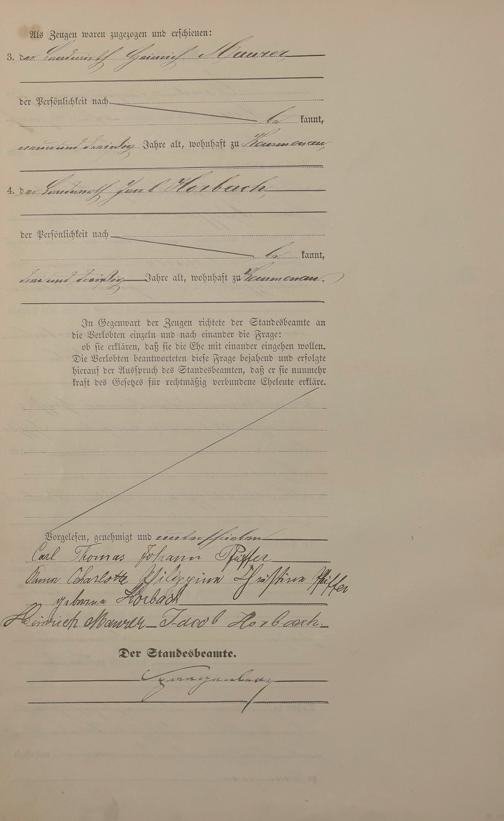 Als Zeugen waren zugezogen und erschienen:
3. der Landwirth Heinrich Maurer
der Persönlichkeit nach
be kannt,
neununddreißig Jahre alt, wohnhaft zu
4. der Landwirth Jacob Horbach
der Persönlichkeit nach
be kannt,
drei und dreißig Jahre alt, wohnhaft zu
In Gegenwart der Zeugen richtete der Standesbeamte an
die Verlobten einzeln und nach einander die Frage:
ob sie erklären, daß sie die Ehe mit einander eingehen wollen.
Die Verlobten beantworteten diese Frage bejahend und erfolgte
hierauf der Ausspruch des Standesbeamten, daß er sie nunmehr
kraft des Gesetzes für rechtmäßig verbundene Eheleute erkläre.
Vorgelesen, genehmigt und unterschrieben
Carl Thomas Johann Pfeiffer
Anna Charlotte Philippine Christine Pfeiffer
geborene Horbach
Heinrich Maurer Jacob Horbach
Der Standesbeamte.